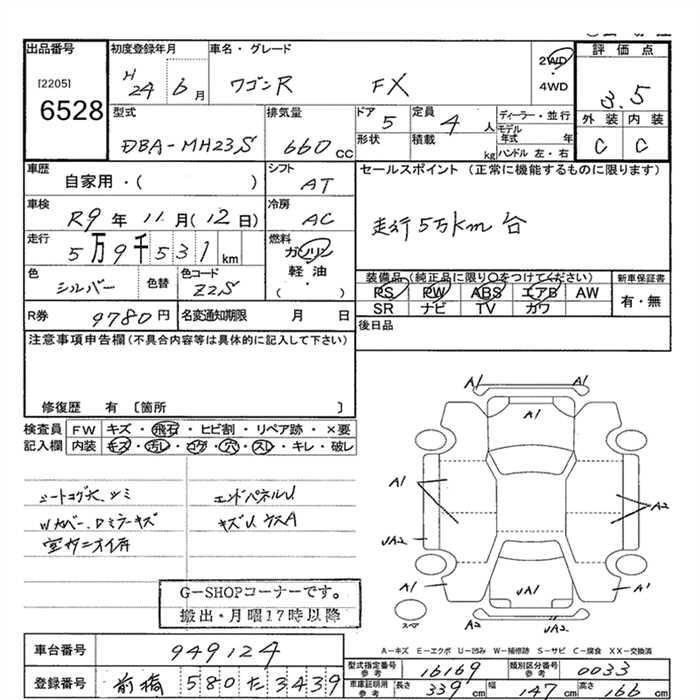 出品番号
[2205]
6528
初度登録年月
H24 6月
車名・グレード
ワゴンR FX
2WD
・
4WD
評価点
3.5
外装 内装
C C
型式
DBA-MH23S
排気量
660cc
ドア
5
定員
4人
形状
積載
kg
ディーラー・並行
モデル年式 年
ハンドル 左・右
車歴
自家用・( )
シフト
AT
セールスポイント (正常に機能するものに限ります)
走行5万km台
車検
R9年11月(12日)
冷房
AC
走行
5万9千531km
燃料
ガソリン
軽油
( ・ )
色
シルバー
色替
色コード
Z2S
装備品(純正品に限り〇をつけてください)
新車保証書
PS PW ABS エアB AW
SR ナビ TV カワ
有・無
R券 9780円
名変通知期限 月 日
後日品
注意事項申告欄(不具合内容等は具体的に記入して下さい)
修復歴 有 〔箇所 〕
検査員記入欄
FW キズ・飛石・ヒビ割・リペア跡・×要
内装 キズ・汚レ・コゲ・穴・スレ・キレ・破レ
シートコゲ大、シミ
Wカバー、Dミラーキズ
室内ニオイ有
エンドパネルU
キズU
G-SHOPコーナーです。
搬出・月曜17時以降
A1
A1
A1
A1
A2
UA2
A1
UA1
A1
スペア
UA1
UA2
A-キズ E-エクボ U-凹み W-補修跡 S-サビ C-腐食 XX-交換済
車台番号 949124
登録番号 前橋 580 た 3439
型式指定番号
参考
16169
類別区分番号
参考
0033
車庫証明用
参考
長さ 339cm 幅 147cm 高さ 166cm